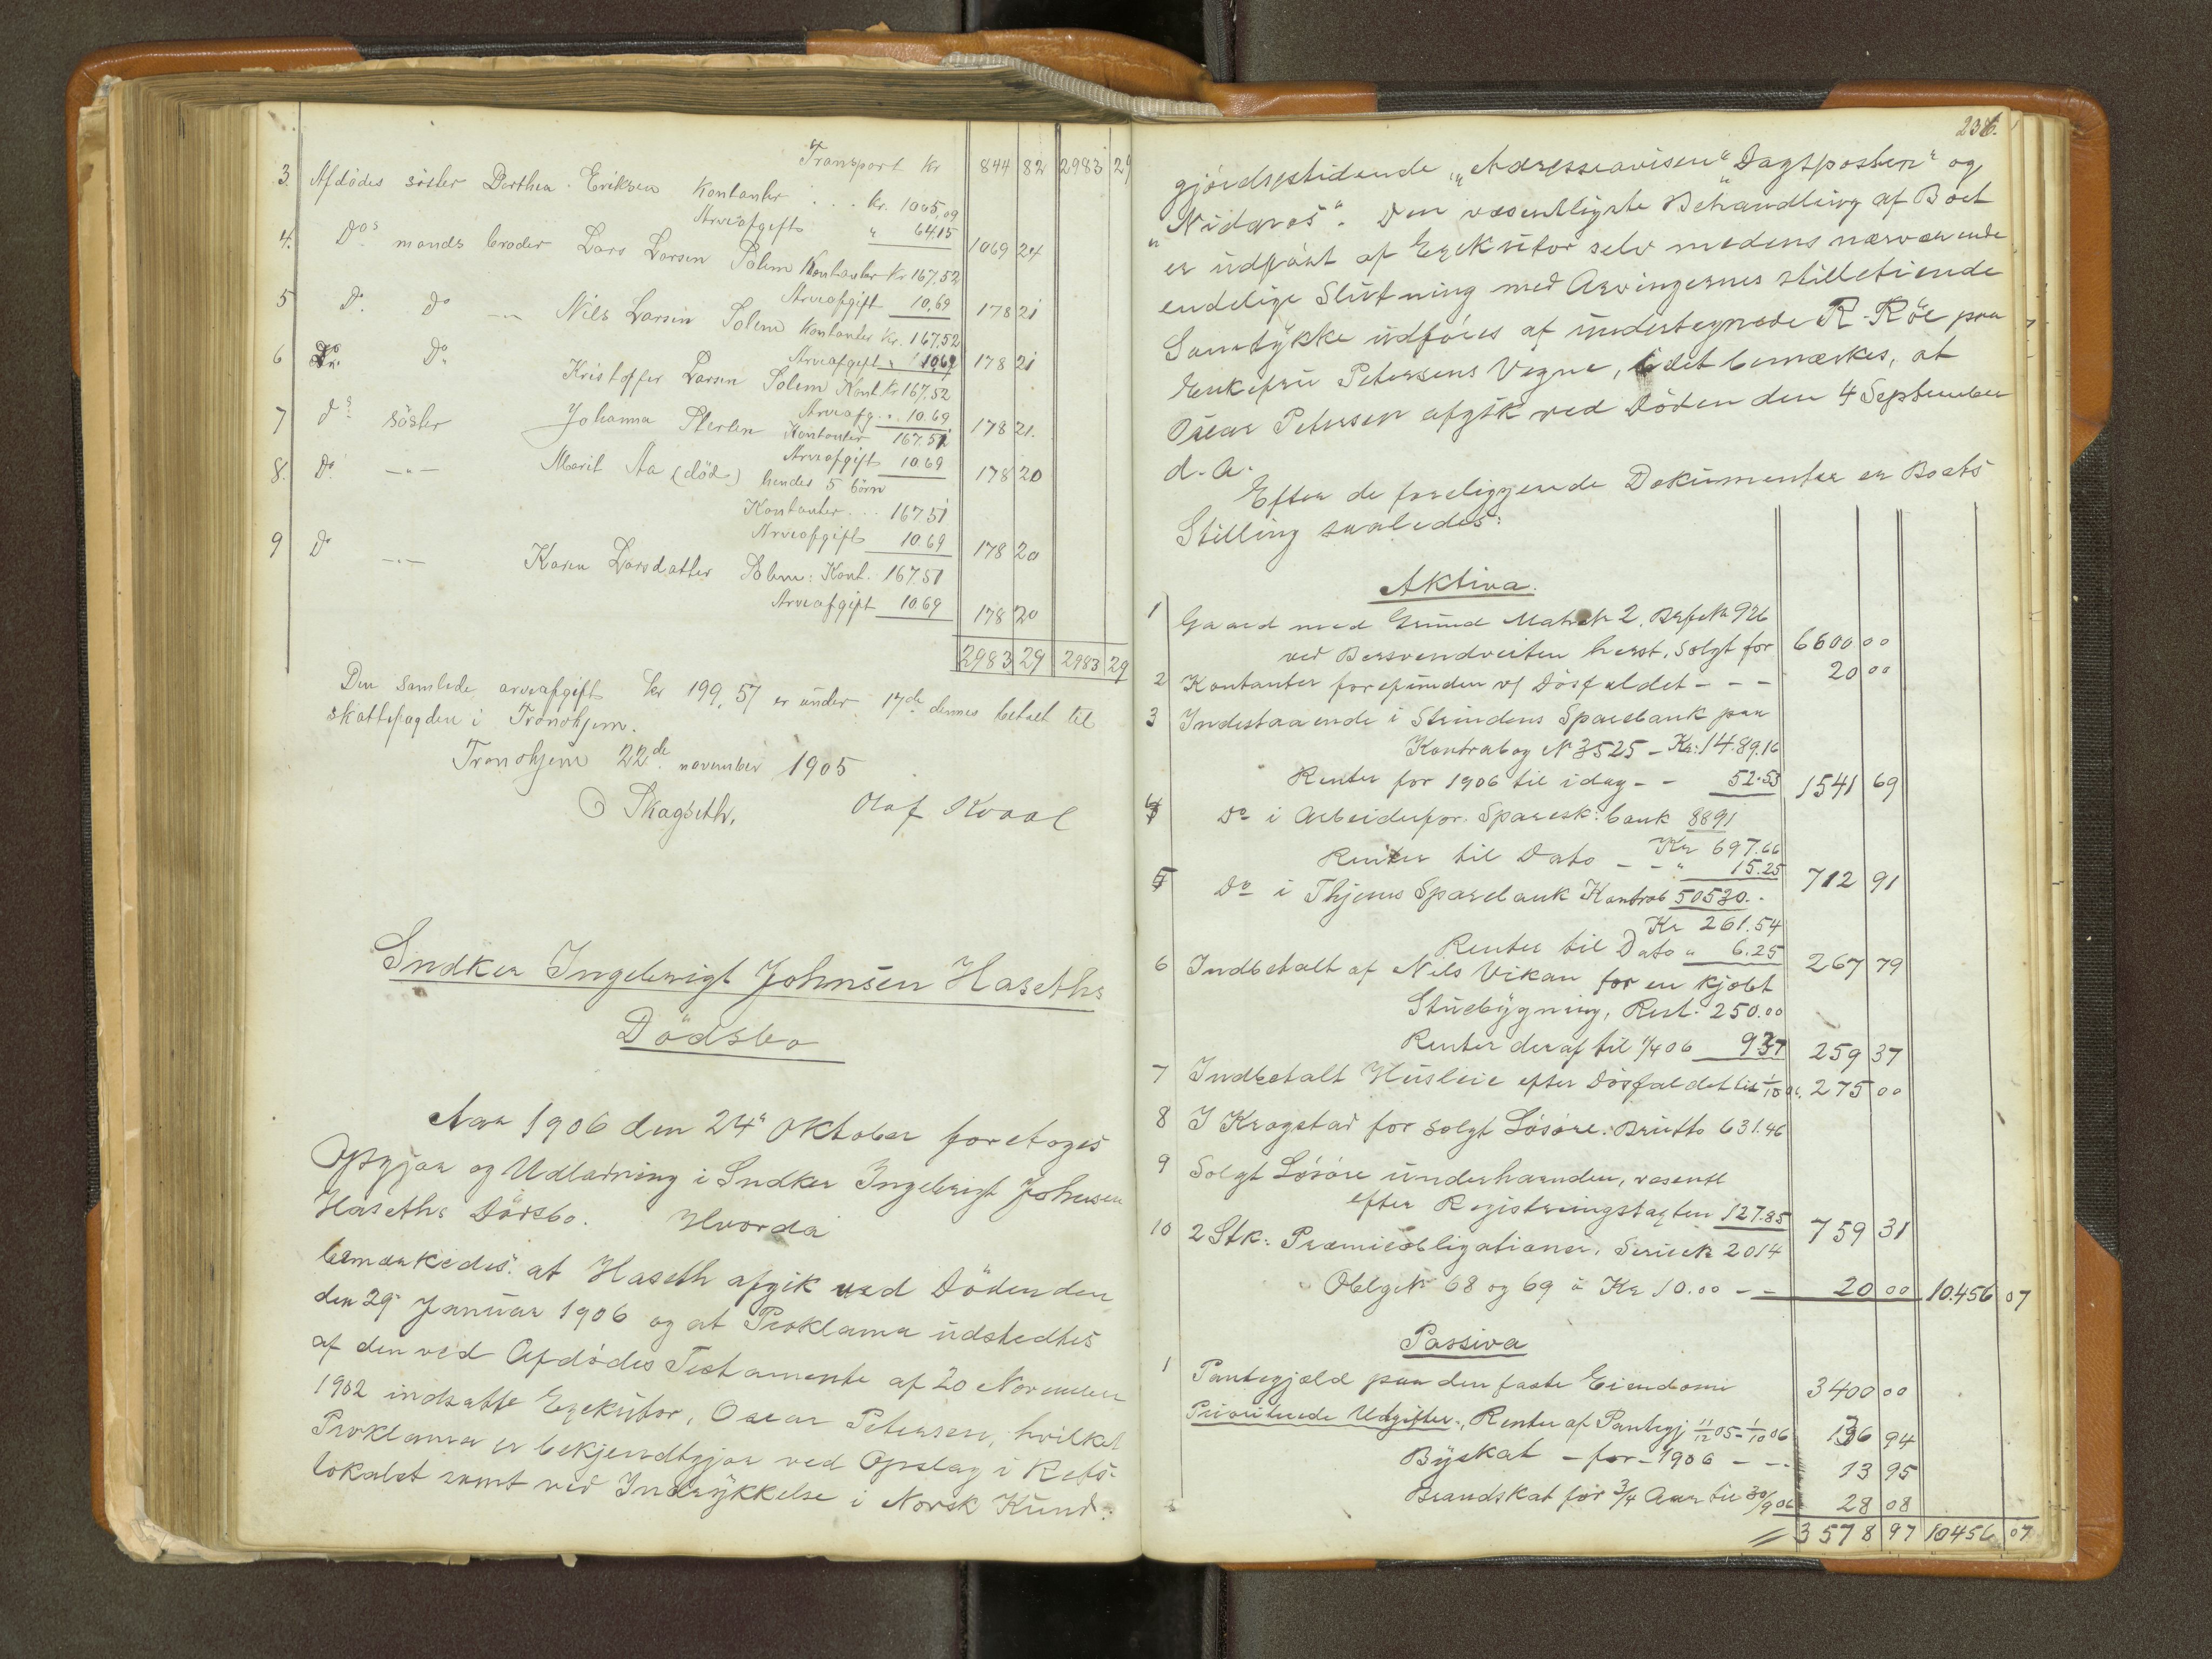 Transport kr 844 82 2983 29
3. Afdødes söster Dorthea Eriksen Kontanter ... kr. 1005,09
Arveafgift " 64.15 1069 24
4. Dos mands broder Lars Larsen Solem Kontanter Kr 167,52
Arveafgift 10,69 178 21
5 Do Do -"- Nils Larsen Solem Kontanter Kr. 167,52
Arveafgift " 10,69 178 21
6 Do Do Kristoffer Larsen Solem Kont Kr 167,52
Arveafg. " 10.69 178 21.
7 do söster Johanna Kontanter 167.51
Arveafgift 10.69 178 20
8. Do -"- Marit Aa (död) hendes 5 börn
Kontanter ... 167 51
Arveafgift 10.69 178 20
9 Do -"- Karen Larsdatter Solem: Kont. 167.51
Arveafgift 10.69 178 20
2983 29 2983 29
Den samlede arveafgift kr 199,57 er under 17de dennes betalt til
skattefogden i Trondhjem.
Trondhjem 22de november 1905
O Skagseth. Olaf Kvaal
Sndker Ingebrigt Johnsen Haseths
Dödsbo
Aar 1906 den 24' Oktober foretoges
Opgjør og Udlodning i Sndker Ingebrigt Johnsen
Haseths Dödsbo. Hvorda
bemærkedes: at Haseth afgik ved Döden den
den 29' Januar 1906 og at Proklama udstedtes
af den ved Afdödes Testamente af 20 November
1902 indsatte Exekutor, Oscar Petersen, hvilket
Proklama er bekjendtgjør ved Opslag i Rets-
lokalet samt ved Indrykkelse i Norsk Kund-
236.
gjørelsestidende, "Adresseavisen" "Dagsposten" og
"Nidaros". Den væsentligste Behandling af Boet
er udført af Exekutor selv medens nærværende
endelige Slutning med Arvingernes stilletiende
Samtykke udføres af undertegnede R. Röe paa
Enkefru Petersens Vegne, idet bemærkes, at
Oscar Petersen afgik ved Döden den 4 September
d. A.
Efter de foreliggende Dokumenter er Boets
Stilling saaledes:
Aktiva.
1 Gaard med Grund Matr. No 2. Brfst. No 926
ved Bersvendveiten herst. Solgt for 6600 00
2 Kontanter forefunden v/ Dösfaldet - - - 20 00
3 Indestaaende i Strindens Sparebank paa
Kontrabog No 3525 - Kr: 1489.16
Renter for 1906 til idag - - 52.53 1541 69
4 Do i Arbeiderfor. Sparesk. bank 8891
Kr 697.66
Renter til Dato - - " 15.25 712 91
5 Do i Thjems Sparebank Kontrab 50530.
Kr 261.54
Renter til Dato " 6.25 267 79
6 Indbetalt af Nils Vikan for en kjøbt
Stuebygning, Rest. 250.00
Renter deraf til 1/4 06 9 37 259 37
7 Indbetalt Husleie efter Dösfaldet til 1/10 06. 275 00
8 J Krogstad for solgt Lösöre. Brutto 631.46
9 Solgt Lösöre underhaanden, væsentl
efter Registreringstaxten 127.85 759 31
10 2 Stk: Præmieobligationer, Serie No 2014
Oblg. No 68 og 69 à Kr 10.00 - - 20 00 10.456 07
Passiva
1 Pantegjæld paa den faste Eiendom 3400 00
Prioriterede Udgifter: Renter af Pantegj 11/12 05 - 1/10 06 136 94
Byskat - for - 1906 - - 13 95
Brandskat for 3/4 Aar til 30/9 06 28 08
3578 97 10456 07